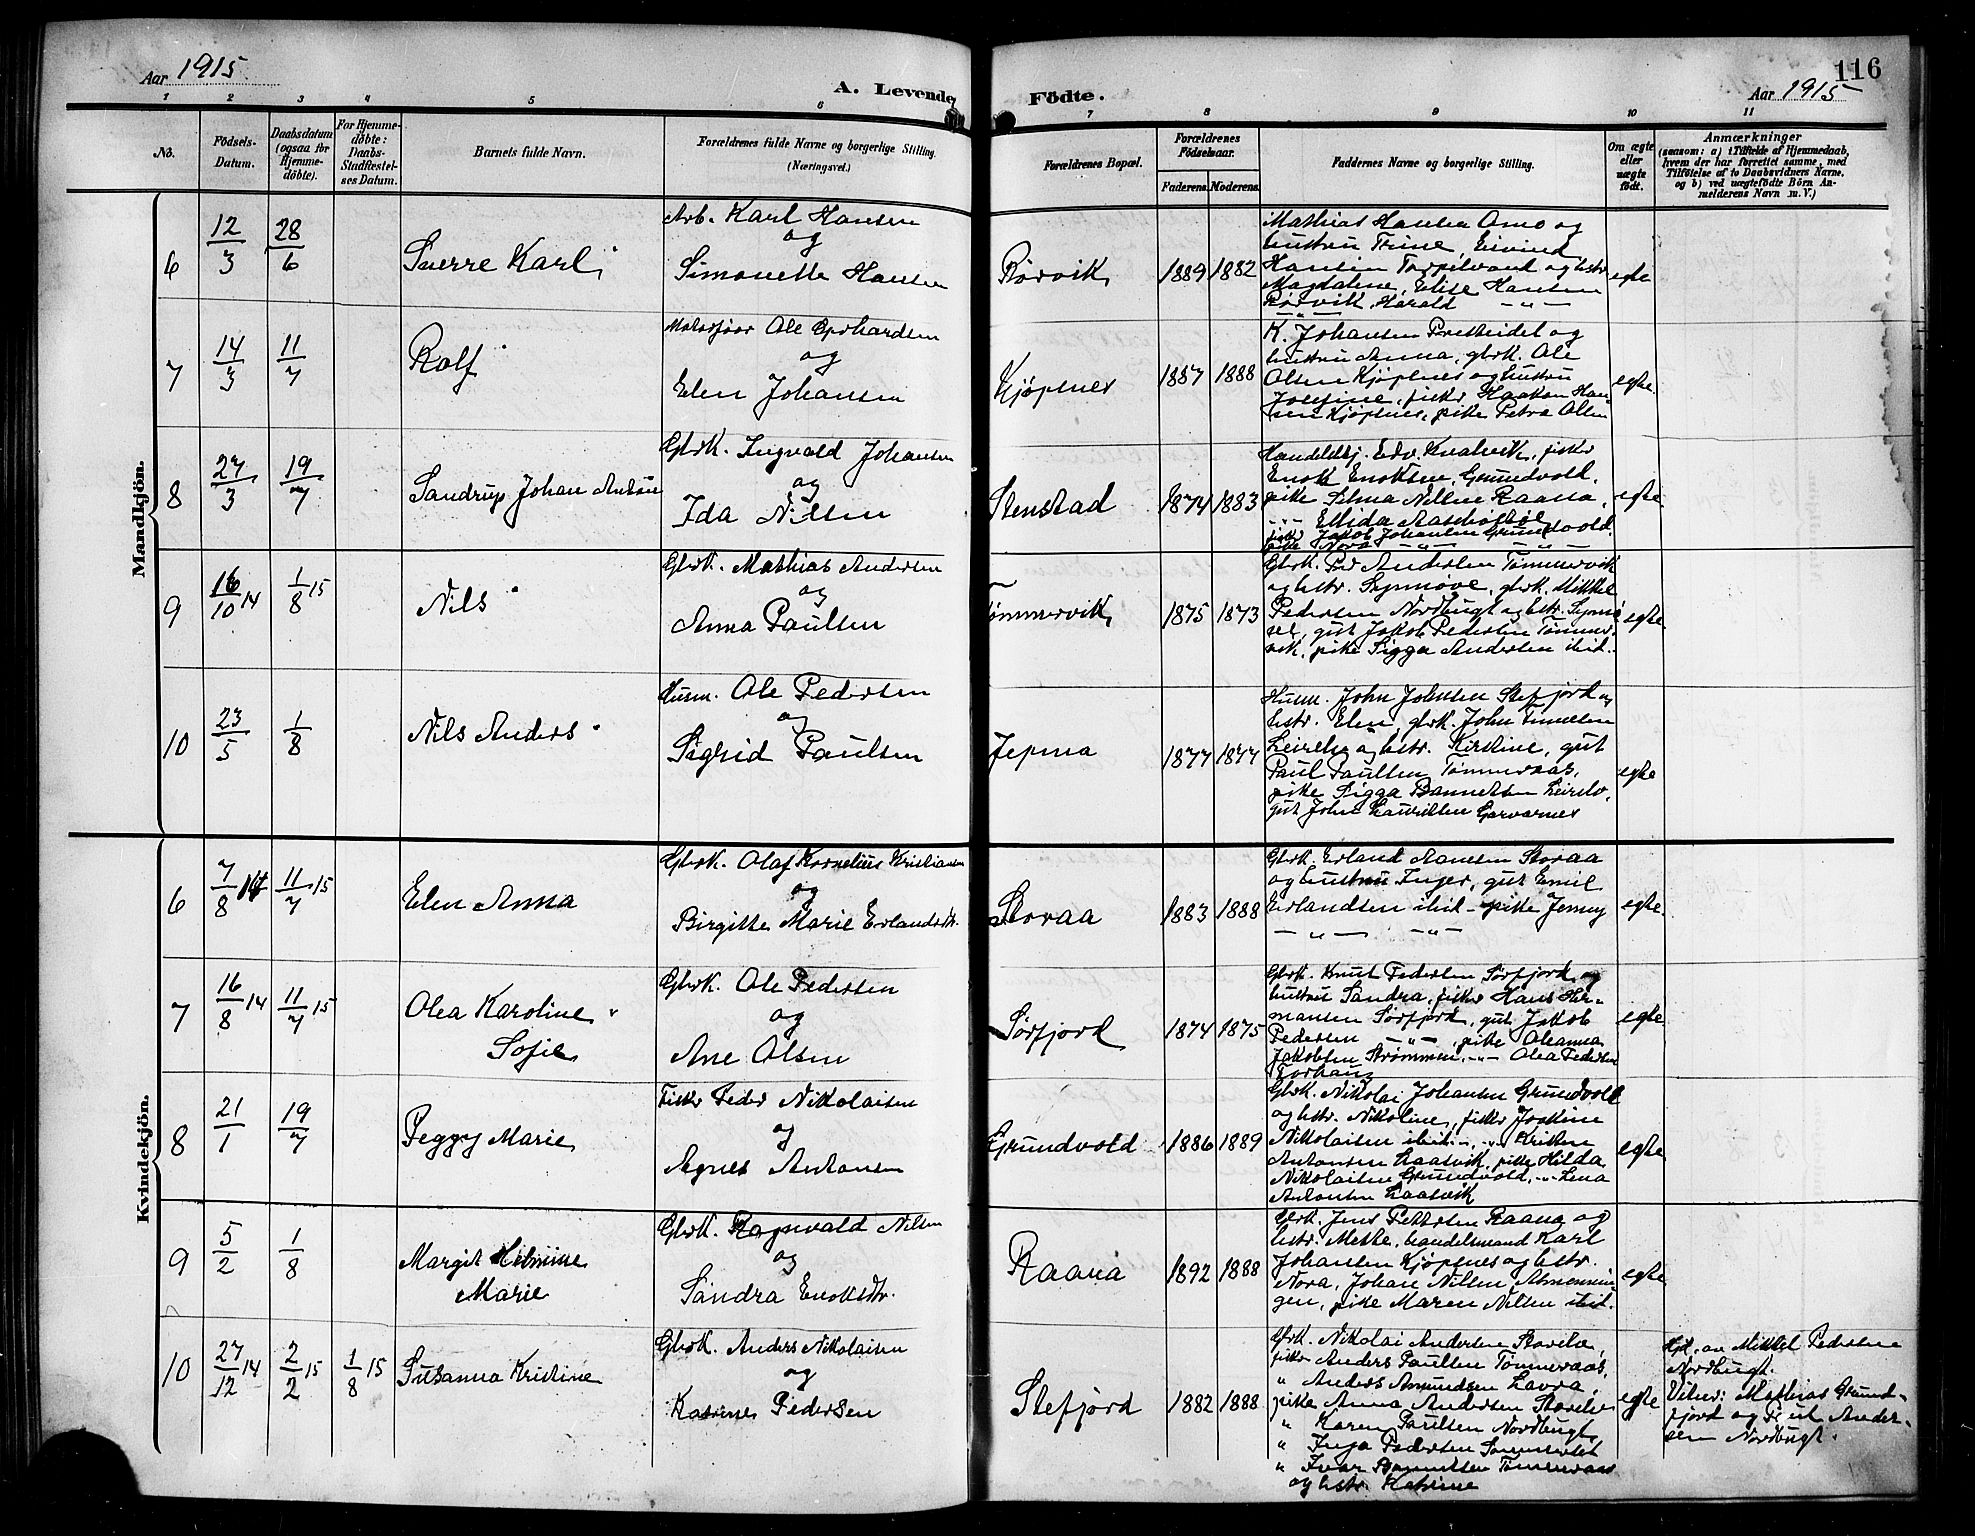 116
Aar 1915
A. Levende Födte.
Aar 1915
1 2 3 4 5 6 7 8 9 10 11
No.
Födsels-
Datum.
Daabsdatum
(ogsaa för
Hjemme-
döbte).
For Hjemme-
döbte:
Daabs-
Stadfæstel-
ses Datum.
Barnets fulde Navn.
Forældrenes fulde Navne og borgerlige Stilling.
(Næringsvei.)
Forældrenes Bopæl.
Forældrenes
Födselsaar.
Faderens. Moderens.
Faddernes Navne og borgerlige Stilling.
Om ægte
eller
uægte
födt.
Anmærkninger
(saasom: a) i Tilfælde af Hjemmedaab,
hvem der har forrettet samme, med
Tilföielse af to Daabsvidners Navne,
og b) ved uægtefödte Börn An-
melderens Navn m. V.)
Mandkjön.
6 12/3 28/6 Sverre Karl
Arb. Karl Hansen
og
Simonette Hansen
Rørvik 1889 1882
Mathias Hansen Omo og
hustru Trine, Eivind
Hansen Torpilvand og hstr
Magdalene, Elise Hansen
Rørvik, Harald — " —
egte
7 14/3 11/7 Rolf
Ole Gerhardsen
og
Elen Johansen
Kjøpsnes 1887 1888
K. Johansen Presteidet og
hustru Anna, gbrk. Ole
Olsen Kjøpsnes og hustru
Josefine, fisker Haakon Han-
sen Kjøpsnes, pike Petra Olsen
egte.
8 27/3 19/7 Sandrup Johan Antun
Gbrk. Ingvald Johansen
og
Ida Nilsen
Stenstad 1874 1883
Handelsbj. Edv. Kvalvik, fisker
Enok Enoksen, Grundvold,
pike Selma Nilsen Raana,
— " — Ellida
fisker Jakob Johansen Grundvold.
pike Nora — " — — " —
egte.
9 16/10 14 1/8 15 Nils
Gbrk. Mathias Andersen
og
Anna Paulsen
Tømmervik 1875 1873
Gbrk. Per Andersen Tømmervik
og hstr. Synnøve, gbrk. Mikkel
Pedersen Nordbugt og hstr. Synnø-
ve, gut Jakob Pedersen Tømmer-
vik, pike Sigga Andersen ibid.
egte.
10 23/5 1/8 Nils Anders
Husm. Ole Pedersen
og
Sigrid Paulsen
Jepma 1877 1877
Husm. John Johnsen Stefjord og
hstr. Elen, gbrk. John
Leirelv og hstr. Kirstine, gut
Paul Paulsen Tømmeraas,
pike Sigga Leirelv,
gut John Lauritsen
egte
Kvindekjön.
6 7/8 14 11/7 15 Elen Anna
Gbrk. Olaf Kornelius Kristiansen
og
Birgitte Marie Erlandsdtr.
Storaa 1883 1888
Gbrk. Erland Aanesen Storaa
og hustru Inger, gut Emil
Erlandsen ibid — pike Jenny
— " — — " —
egte.
7 16/8 14 11/7 15 Olea Karoline
Sofie
Gbrk. Ole Pedersen
og
Ane Olsen
Sørfjord 1874 1875
Gbrk. Knut Pedersen Sørfjord og
hustru Sandra, fisker Hans Her-
mansen Sørfjord, gut Jakob
Pedersen — " —, pike Oleanna
Jakobsen Strømmen, — " — Olea Pedersen
Forhaug
egte
8 21/1 19/7 Peggy Marie
Fisker Peder Nikolaisen
og
Agnes Antonsen
Grundvold 1886 1889
Gbrk. Nikolai Johansen Grundvold
og hstr. Nikoline, fisker
Nikolaisen ibid —, — " — Kristen
Antonsen Laasvik, pike Hilda
Nikolaisen Grundvold, — " — Lena
Antonsen Laasvik
egte.
9 5/2 1/8 Margit Helmine
Marie
Gbrk. Ragnvald Nilsen
og
Sandra Enoksdtr.
Raana 1892 1888
Gbrk. Jens Pettersen Raana og
hstr. Mette, handelsmand Karl
Johansen Kjøpsnes og hstr.
Nora, Johan Nilsen Almennin-
gen, pike Maren Nilsen ibid.
egte
10 27/12 14 2/2 15 1/8 15 Susanna Kristine
Gbrk. Anders Nikolaisen
og
Katrine Pedersen
Stefjord 1882 1888
Gbrk. Nikolai Andersen Storelv,
fisker Anders Paulsen Tømmeraas,
" Anders Amundsen Lavra,
pike Anna Andersen Storelv
" Karen Paulsen Nordbugt,
" Inga Pedersen
" Ivar Tømmeraas
og hstr. Katrine
egte
Hjd. av Mikkel Pedersen
Nordbugt.
Vidner: Mathias Grund-
fjord og Paul Ander-
sen Nordbugt.